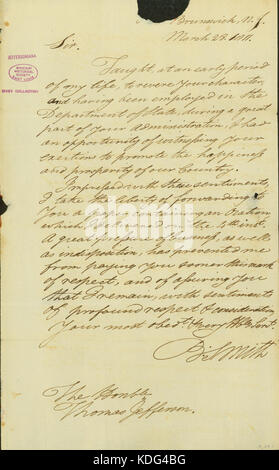 Brunswick, N. J.
March 23. 1811.
Sir.
JEFFERSONIANA
MISSOURI
HISTORICAL
SOCIETY
BIXBY COLLECTION
Taught, at an early period
of my life, to revere your character,
and having been employed in the
Department of State, during a great
part of your Administration, I had
an opportunity of witnessing your
exertions to promote the happiness
and prosperity of our Country.
Impressed with these sentiments,
I take the liberty of forwarding to
You a paper containing an Oration
which I delivered on the 4th inst.
A great pressure of business, as well
as indisposition, has prevented me
from paying you sooner this mark
of respect, and of assuring You
that I remain, with sentiments
of profound respect & consideration
Your most obedt. & very Hble Servt.
Smith
The Honble
Thomas Jefferson.
alamy
www.alamy.com
KDG4BG